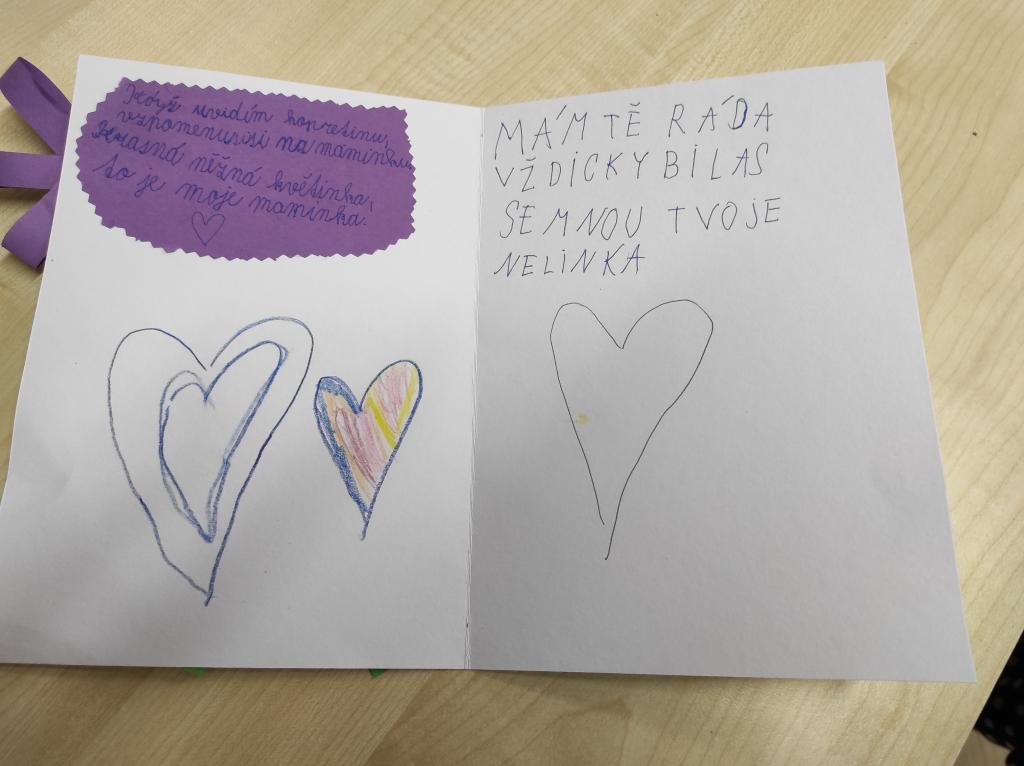 Když uvidím kopretinu,
vzpomenu si na maminku.
Krasná něžná květinka,
to je moje maminka.
MÁM TĚ RÁDA
VŽDICKY BILAS
SEMNOU TVOJE
NELINKA